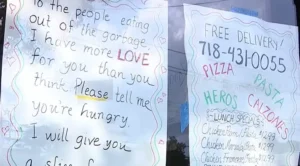 To the people eating
out of the garbage
I have more LOVE
for you than you
think Please tell me
you're hungry.
I will give you
FREE DELIVERY!
718-431-0055
PIZZA
PASTA
HEROS
CALZONES
LUNCH SPECIALS